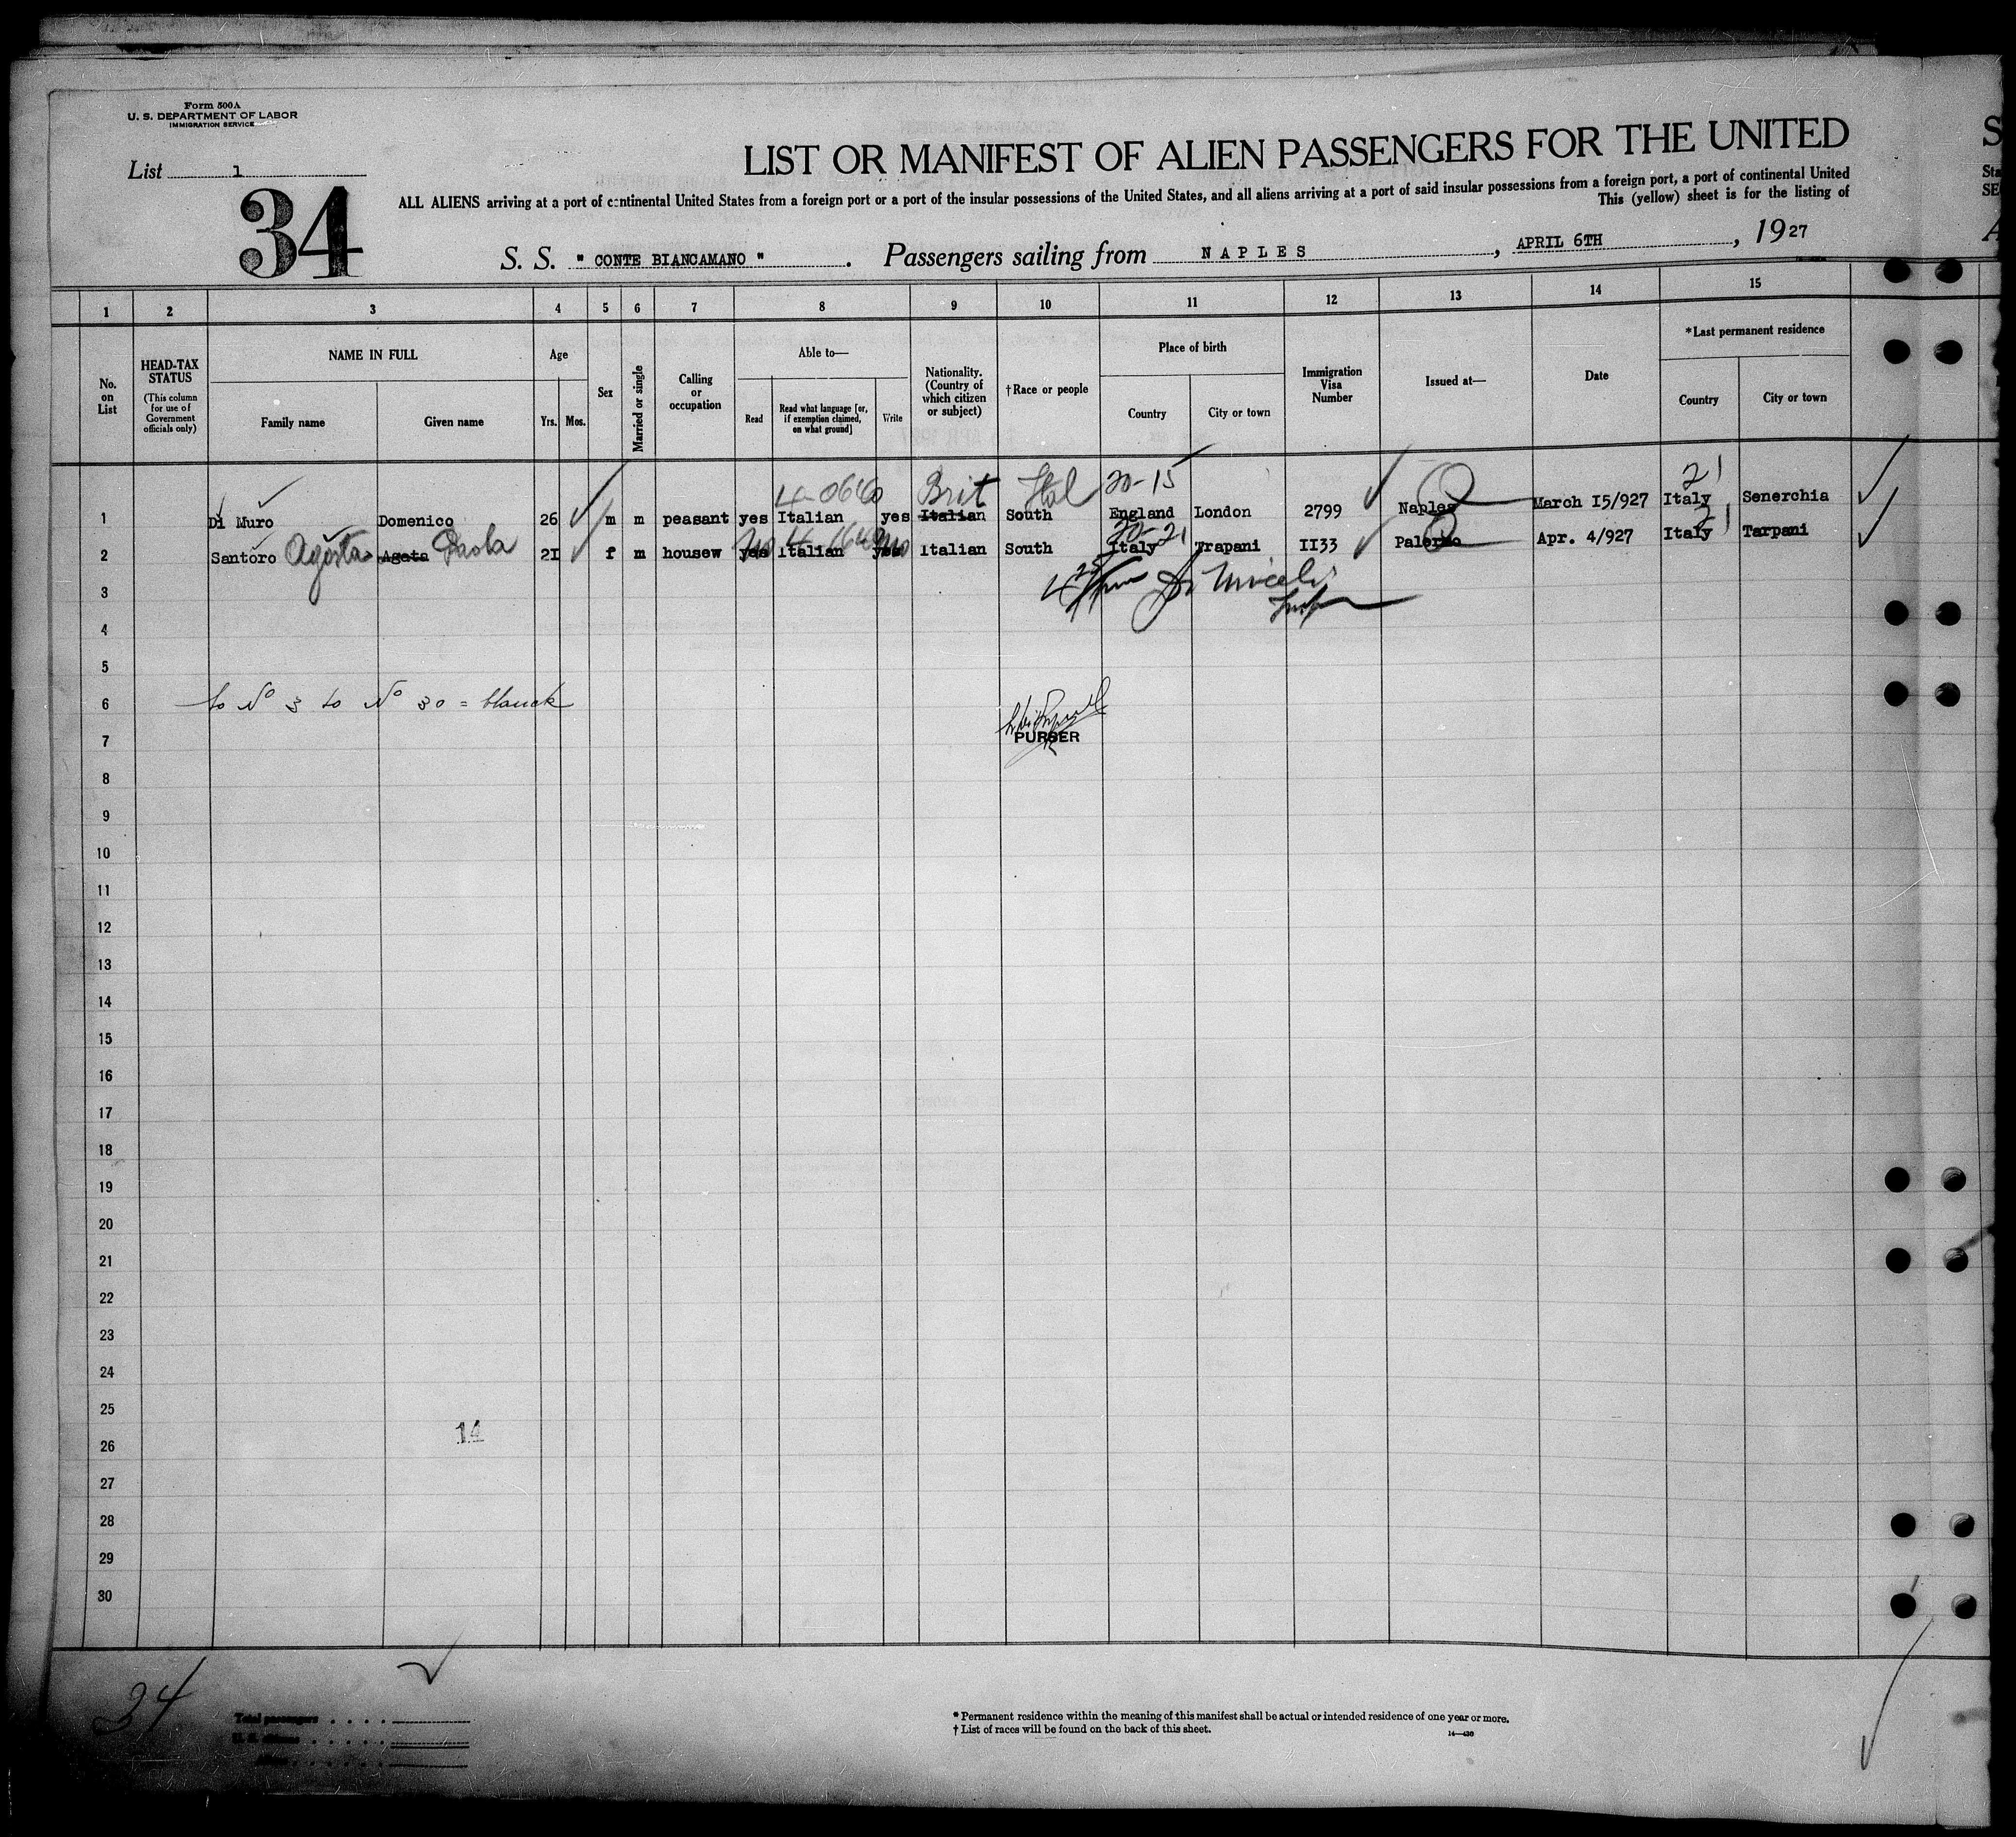 Form 500A
U. S. DEPARTMENT OF LABOR
IMMIGRATION SERVICE
List 1
34
LIST OR MANIFEST OF ALIEN PASSENGERS FOR THE UNITED
S
ALL ALIENS arriving at a port of continental United States from a foreign port or a port of the insular possessions of the United States, and all aliens arriving at a port of said insular possessions from a foreign port, a port of continental United
Sta
This (yellow) sheet is for the listing of
SE
S. S. " CONTE BIANCAMANO ". Passengers sailing from NAPLES, APRIL 6TH, 1927
A
1 2 3 4 5 6 7 8 9 10 11 12 13 14 15
No. on List
HEAD-TAX STATUS
(This column for use of Government officials only)
NAME IN FULL
Family name
Given name
Age
Yrs.
Mos.
Sex
Married or single
Calling or occupation
Able to—
Read
Read what language [or, if exemption claimed, on what ground]
Write
Nationality. (Country of which citizen or subject)
†Race or people
Place of birth
Country
City or town
Immigration Visa Number
Issued at—
Date
*Last permanent residence
Country
City or town
Brit Ital 20-15 21
1 Di Muro Domenico 26 m m peasant yes Italian yes Italian South England London 2799 Naples March I5/927 Italy Senerchia
no no 20-21 21
2 Santoro Agosta Agata Paola 2I f m housew yes Italian yes Italian South Italy Trapani II33 Palermo Apr. 4/927 Italy Tarpani
3
4
5
6 to No 3 to No 30 = blanck
7 PURSER
8
9
10
11
12
13
14
15
16
17
18
19
20
21
22
23
24
25
14
26
27
28
29
30
34
Total passengers
U. S. citizens
Aliens
* Permanent residence within the meaning of this manifest shall be actual or intended residence of one year or more.
† List of races will be found on the back of this sheet.
14—430